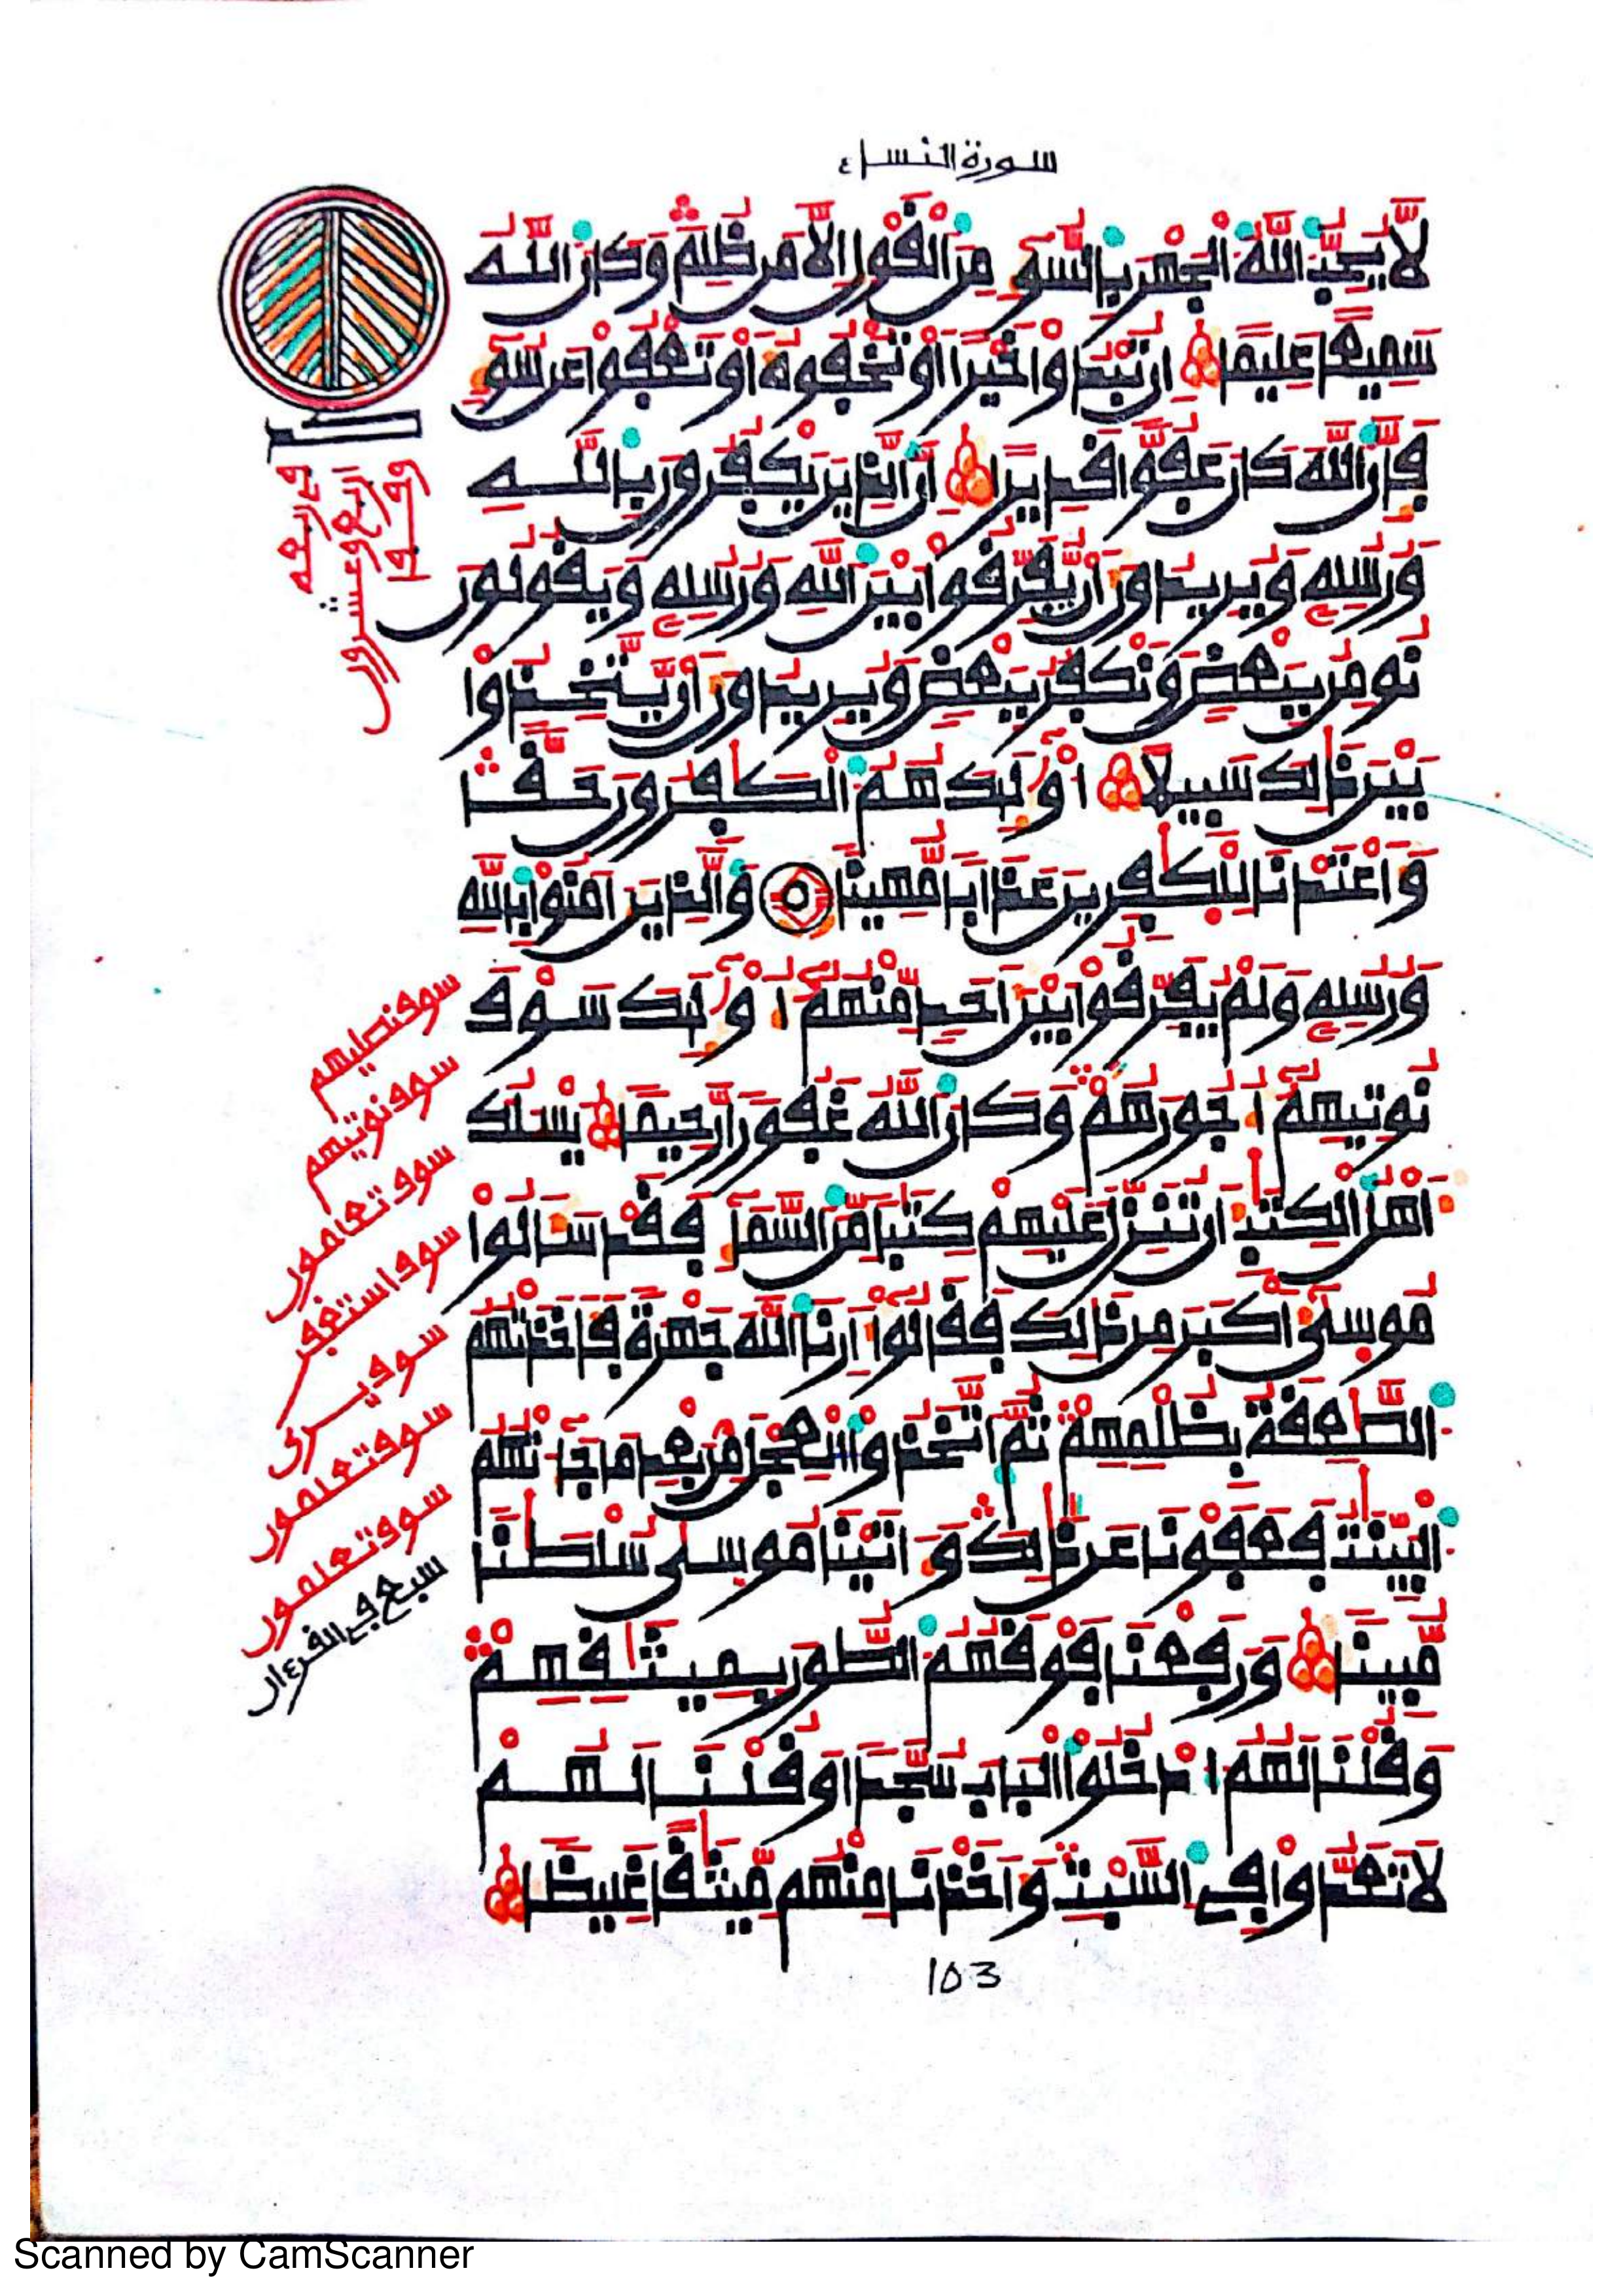 سورة النساء
لَّا يُحِبُّ اللَّهُ الْجَهْرَ بِالسُّوءِ مِنَ الْقَوْلِ إِلَّا مَن ظُلِمَ وَكَانَ اللَّهُ
سَمِيعًا عَلِيمًا إِن تُبْدُوا خَيْرًا أَوْ تُخْفُوهُ أَوْ تَعْفُوا عَن سُوءٍ
فَإِنَّ اللَّهَ كَانَ عَفُوًّا قَدِيرًا إِنَّ الَّذِينَ يَكْفُرُونَ بِاللَّهِ
وَرُسُلِهِ وَيُرِيدُونَ أَن يُفَرِّقُوا بَيْنَ اللَّهِ وَرُسُلِهِ وَيَقُولُونَ
نُومِنُ بِبَعْضٍ وَنَكْفُرُ بِبَعْضٍ وَيُرِيدُونَ أَن يَتَّخِذُوا
بَيْنَ ذَٰلِكَ سَبِيلًا أُولَٰئِكَ هُمُ الْكَٰفِرُونَ حَقًّا
وَأَعْتَدْنَا لِلْكَٰفِرِينَ عَذَابًا مُّهِينًا وَالَّذِينَ آمَنُوا بِاللَّهِ
وَرُسُلِهِ وَلَمْ يُفَرِّقُوا بَيْنَ أَحَدٍ مِّنْهُمْ أُولَٰئِكَ سَوْفَ
نُوتِيهِمْ أُجُورَهُمْ وَكَانَ اللَّهُ غَفُورًا رَّحِيمًا يَسْـَٔلُكَ
أَهْلُ الْكِتَٰبِ أَن تُنَزِّلَ عَلَيْهِمْ كِتَٰبًا مِّنَ السَّمَاءِ فَقَدْ سَأَلُوا
مُوسَىٰ أَكْبَرَ مِن ذَٰلِكَ فَقَالُوا أَرِنَا اللَّهَ جَهْرَةً فَأَخَذَتْهُمُ
الصَّٰعِقَةُ بِظُلْمِهِمْ ثُمَّ اتَّخَذُوا الْعِجْلَ مِن بَعْدِ مَا جَاءَتْهُمُ
الْبَيِّنَٰتُ فَعَفَوْنَا عَن ذَٰلِكَ وَءَاتَيْنَا مُوسَىٰ سُلْطَٰنًا
مُّبِينًا وَرَفَعْنَا فَوْقَهُمُ الطُّورَ بِمِيثَٰقِهِمْ
وَقُلْنَا لَهُمُ ادْخُلُوا الْبَابَ سُجَّدًا وَقُلْنَا لَهُمْ
لَا تَعَدُّوا فِي السَّبْتِ وَأَخَذْنَا مِنْهُم مِّيثَٰقًا غَلِيظًا
سوف نصليهم
سوف نوتيهم
سوف تعلمون
سوف استغفر
سوف يرى
سوف تعلمون
سوف تعلمون
سبع في القرءان
103
Scanned by CamScanner